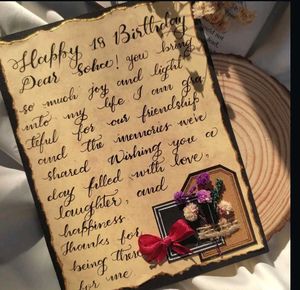 Happy 19 Birthday
Dear Soha! you bring
so much joy and light
into my life I am gra
tiful for our friendship
and the memories we're
shared Wishing you a
day filled with love,
laughter, and
happiness
Thanks for
being there
for me